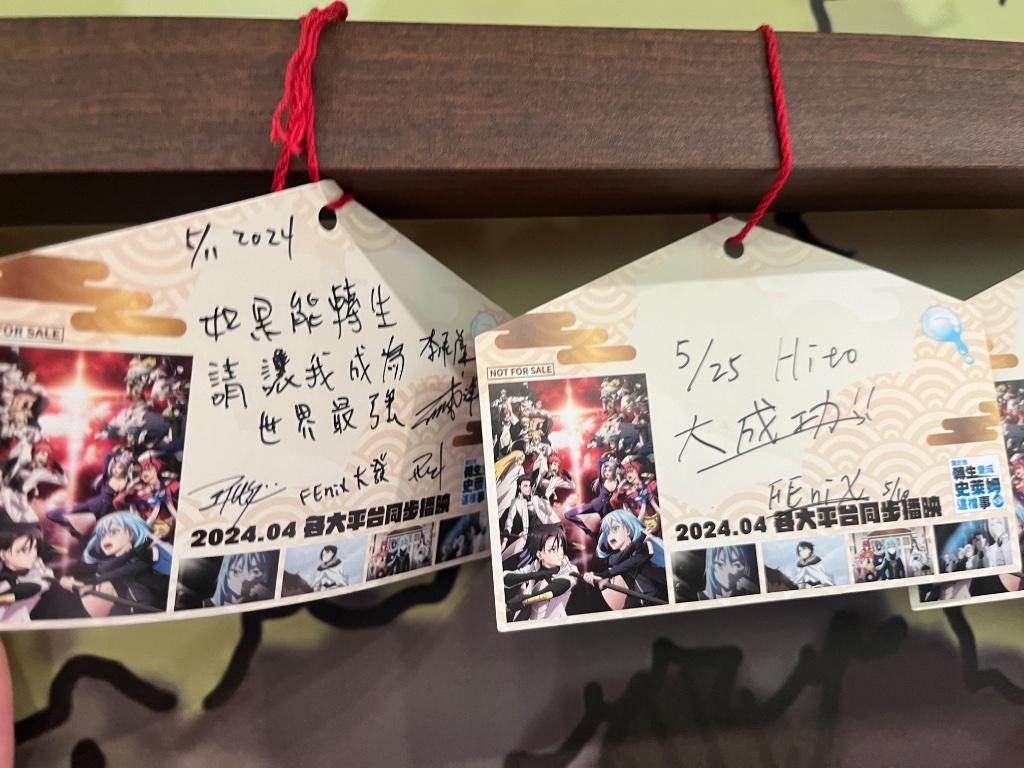 5/11 2024
如果能轉生
請讓我成為
世界最強
FEniX 大發
FOR SALE
2024.04 各大平台同步播映
轉生變成
史萊姆
這檔事
5/25 Hito
大成功!!
FEniX
NOT FOR SALE
2024.04 各大平台同步播映
關於我
轉生變成
史萊姆
這檔事